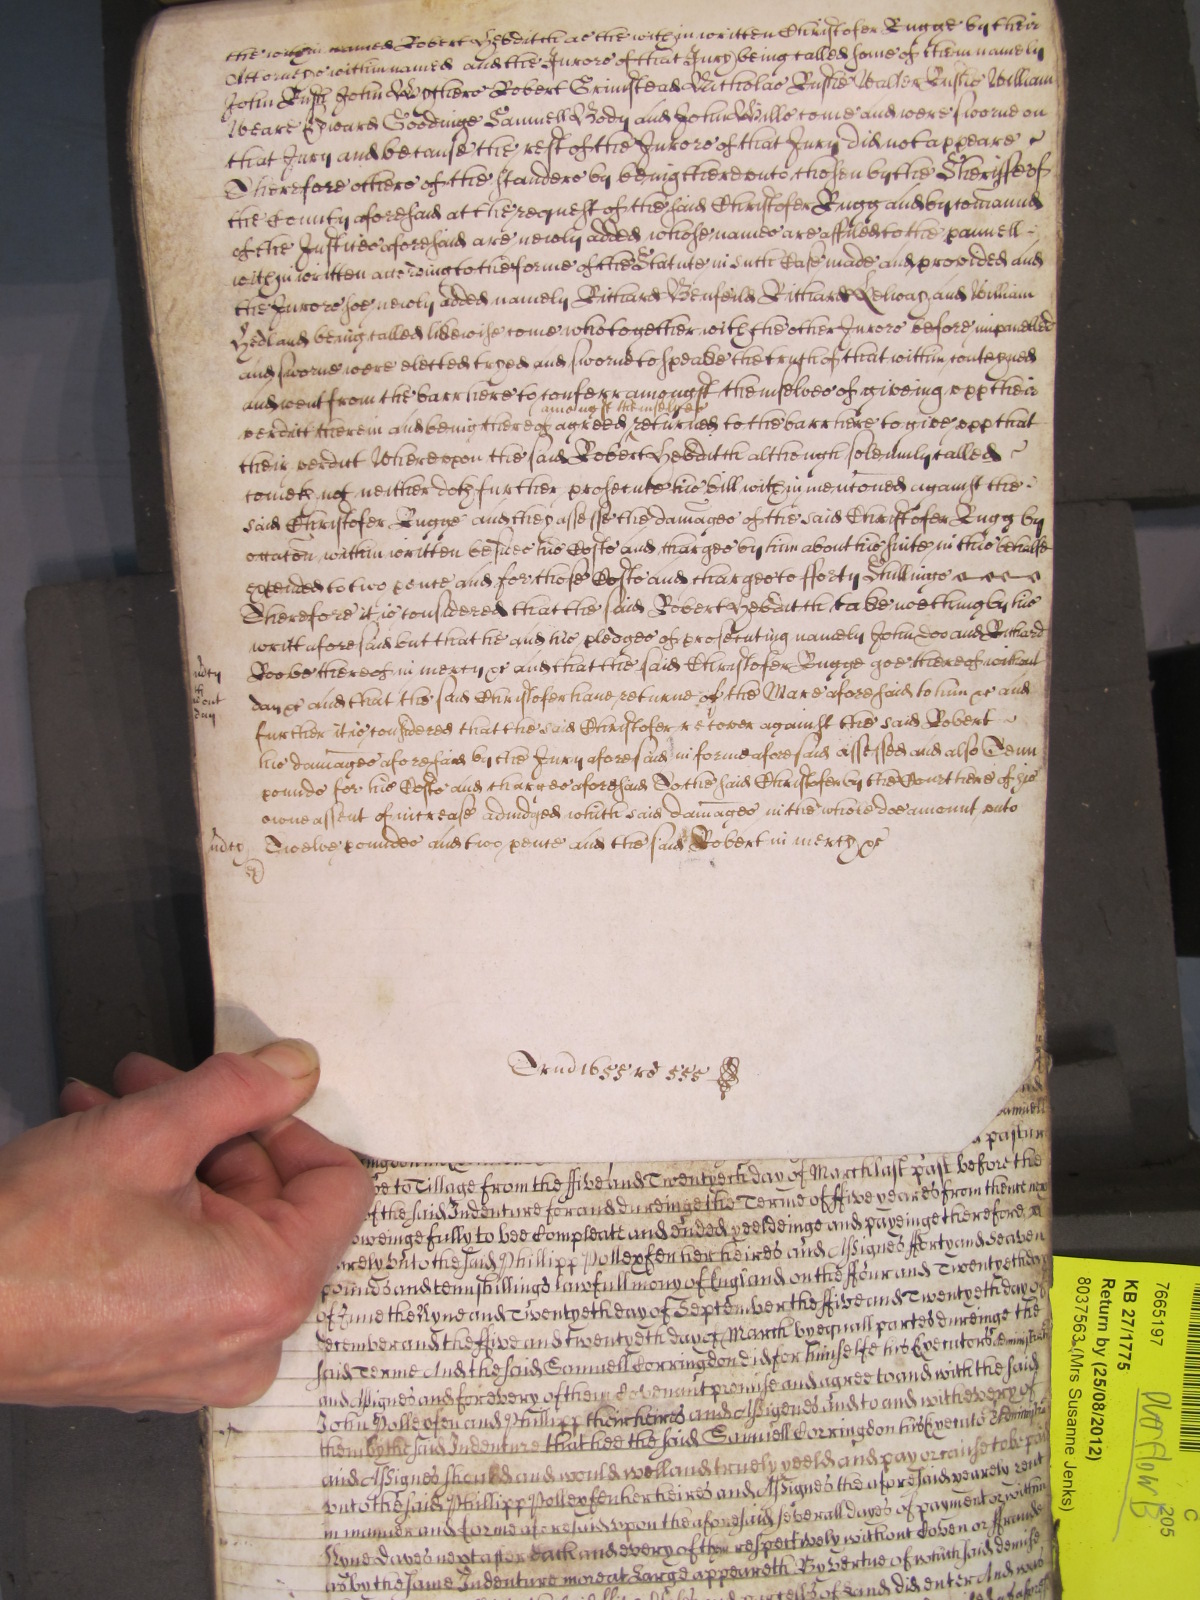 the within named Robert Hebditch as the within written Christofer Rugge by their
Attorneys within named and the Jurors of that Jury being called some of them namely
John Rush John Withers Robert Grinstead Nicholas Russe Walter Russe William
Weare Edward Goodinge Samuell Body and John Wills come and were sworne on
that Jury and because the rest of the Jurors of that Jury did not appeare
Therefore others of the standers by being thereunto chosen by the Sheriffe of
the County aforesaid at the request of the said Christofer Rugg and by comaund
of the Justices aforesaid are newly added whose names are affiled to the pannell
within written according to the forme of the Statute in such Case made and provided and
the Jurors soe newly added namely Richard Benfeild Richard Kelway and William
Hedland being called likewise come who together with the other Jurors before impanelled
and sworne were elected tryed and sworne to speake the truth of that within conteyned
and went from the barr here to conferr amongst themselves of giveing upp their
amongst themselves
verdict therein and being thereof agreed returned to the barr here to give upp that
their verdict Whereupon the said Robert Hebditch although solemnly called
cometh not neither doth further prosecute his bill within mencioned against the
said Christofer Rugge and they assesse the damages of the said Christofer Rugg by
occacon within written besides his Costs and charges by him about his suite in this behalfe
expended to two pence and for those Costs and charges to fforty Shillings
Therefore it is considered that the said Robert Hebditch take nothing by his
writt aforesaid but that he and his pledges of prosecuting namely John Doo and Richard
Roo be thereof in mercy &c and that the said Christofer Rugge goe thereof without
day &c and that the said Christofer have returne of the Mare aforesaid to him &c and
further it is considered that the said Christofer recover against the said Robert
his damages aforesaid by the Jury aforesaid in forme aforesaid assessed and also Tenn
pounds for his Costs and charges aforesaid To the said Christofer by the Court here of his
owne assent of increase adiudged which said damages in the whole doe amount unto
Twelve pounds and two pence and the said Robert in mercy &c
mcy
out
day
mcy
Trin 1655 ro 555
a pasture
to Tillage from the ffive and Twentyeth day of March last past before the
of the said Indenture for and dureinge the Terme of ffive yeares from thence next
oweinge fully to bee compleate and ended yeeldeinge and payeinge therefore
yearely unto the said Phillipp Pollexfen her heires and Assignes fforty and Seaven
pounds and tenn shillings lawfull mony of England on the ffour and Twentyeth day
of June the Nyne and Twentyeth day of September the ffive and Twentyeth day of
December and the ffive and twentyeth day of March by equall partes dureinge the
said Terme And the said Samuell Corringdon did for himselfe his Executors
and Assignes and for every of them covenant promise and agree to and with the said
John Pollexfen and Phillipp their heires and Assignes and to and with every of
them by the said Indenture that hee the said Samuell Corringdon his Executors
and Assignes should and would well and truely yeeld and pay or cause to be paid
unto the said Phillipp Pollexfen her heires and Assignes the aforesaid yearely rent
in manner and forme aforesaid upon the aforesaid severall dayes of payment or within
Nyne dayes next after each and every of them respectively without Coven or ffraude
as by the same Indenture more at Large appeareth By vertue of which said demise
of Land did enter And was
7665197
KB 27/1775
Return by (25/08/2012)
8037563 (Mrs Susanne Jenks)
C
205